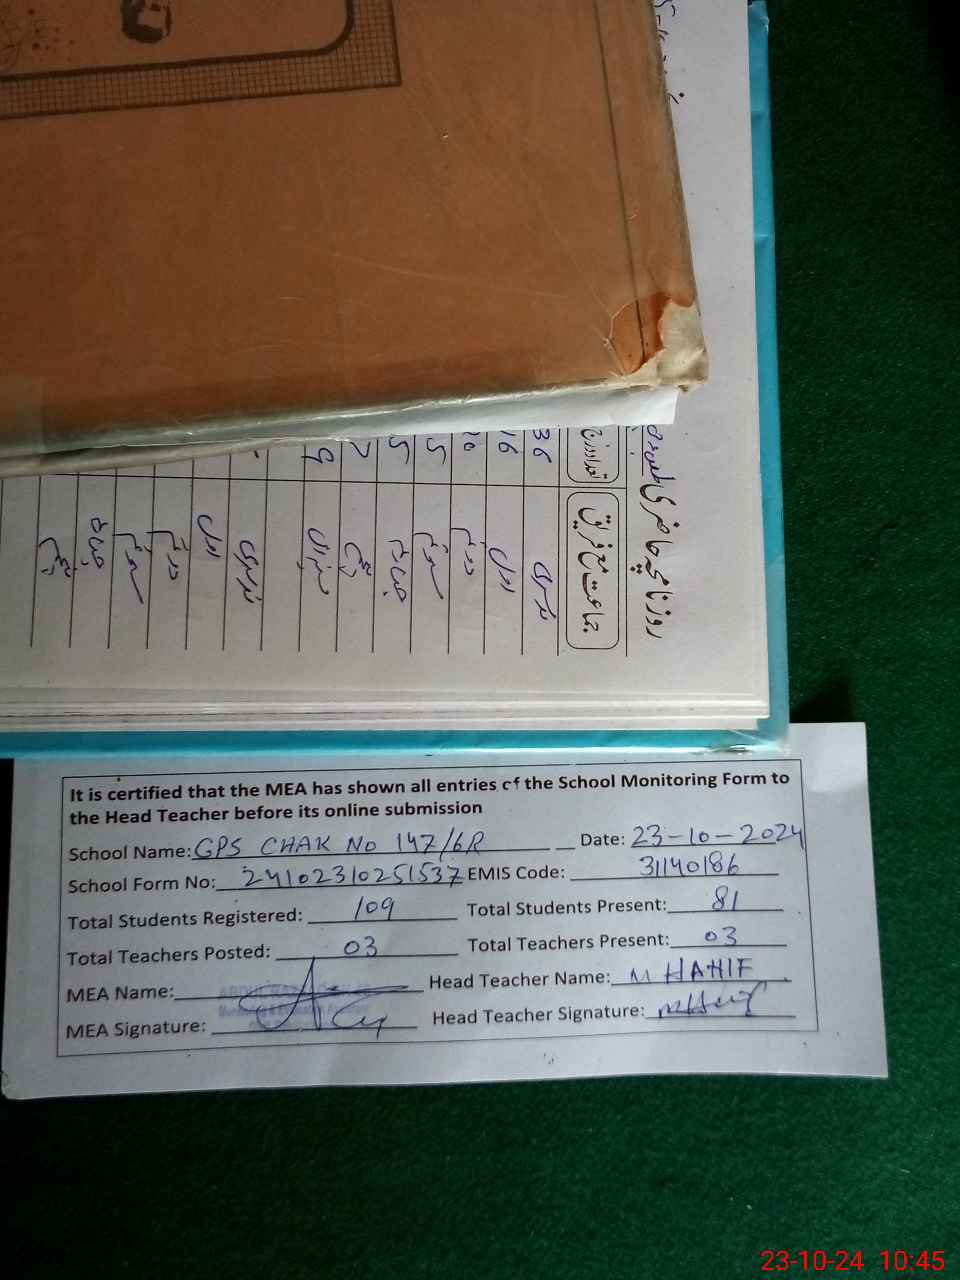 روزنامچہ حاضری
جماعت مع فریق
تعداد درج
نرسری 36
اول 16
دوئم
سوئم 5
چہارم 5
پنجم 7
میزان 9
نرسری
اول
دوئم
سوئم
چہارم
پنجم
It is certified that the MEA has shown all entries of the School Monitoring Form to
the Head Teacher before its online submission
School Name: GPS CHAK No 147/6R Date: 23-10-2024
School Form No: 24102310251537 EMIS Code: 31140186
Total Students Registered: 109 Total Students Present: 81
Total Teachers Posted: 03 Total Teachers Present: 03
MEA Name: Head Teacher Name: M HANIF
MEA Signature: Head Teacher Signature:
23-10-24 10:45